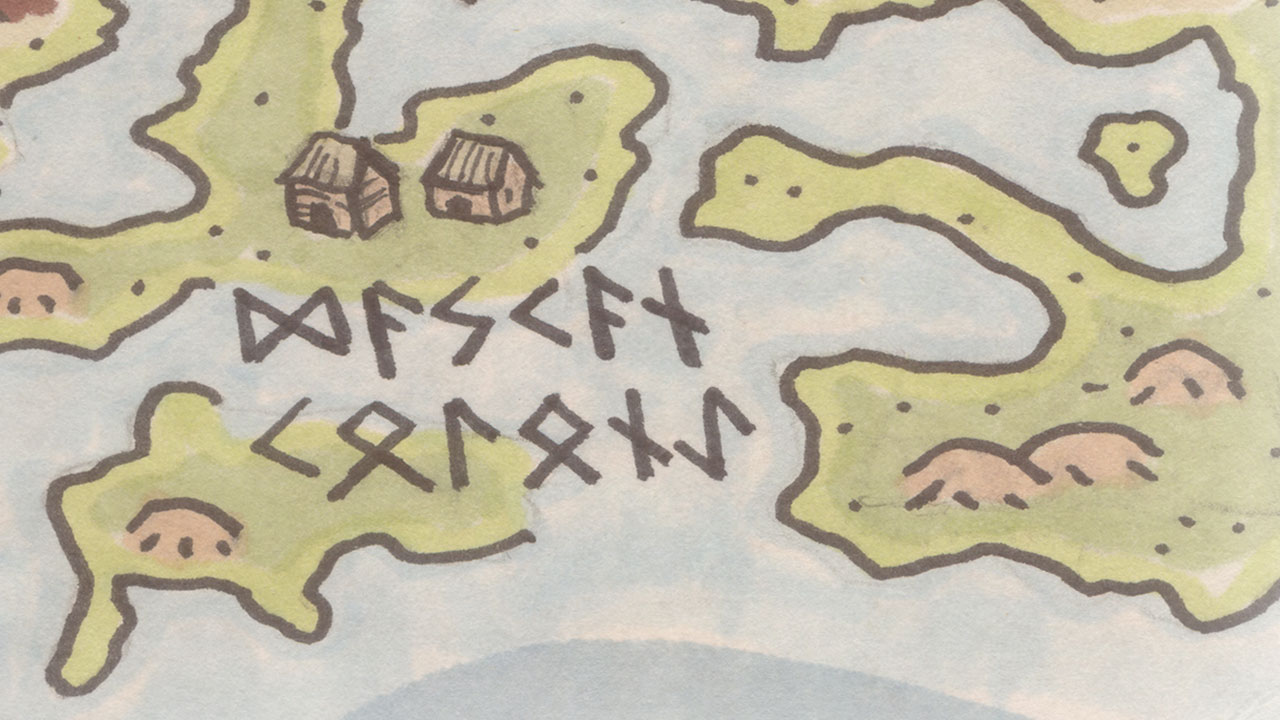 ᛞᚨᛊᚲᚨᚾ
ᚲᛟᛚᛟᚾᛇ